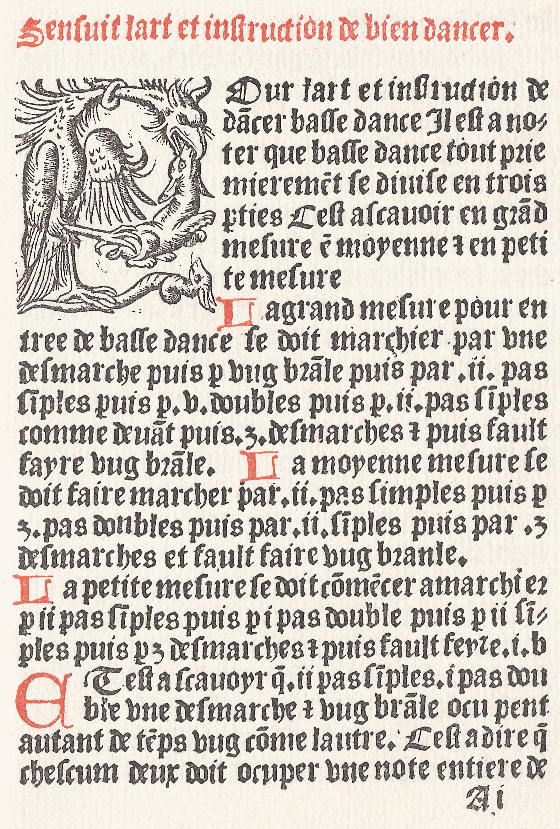 Sensuit lart et instruction de bien dancer.
Our lart et instruction de
dãcer basse dance Il est a no⸗
ter que basse dance tout prie
mieremẽt se diuise en trois
ꝑties Cest ascauoir en grãd
mesure ẽ moyenne ⁊ en peti
te mesure
La grand mesure pour en
tree de basse dance se doit marchier par vne
desmarche puis ꝑ vug brãle puis par .ii. pas
sĩples puis ꝑ. v. doubles puis ꝑ. ii. pas sĩples
comme deuãt puis .3. desmarches ⁊ puis fault
fayre vug brãle. La moyenne mesure se
doit faire marcher par .ii. pas simples puis ꝑ
3. pas doubles puis par .ii. sĩples puis par .3
desmarches et fault faire vug branle.
La petite mesure se doit cõmẽcer a marchier
ꝑ ii pas sĩples puis ꝑ i pas double puis ꝑ ii sĩ⸗
ples puis ꝑ 3 desmarches ⁊ puis fault feyre .i. b
ET est a scauoyr q̃ .ii pas sĩples .i pas dou
ble vne desmarche ⁊ vug brãle ocupent
autant de tẽps vug cõme lautre. Cest a dire q̃
chescum deux doit ocuper vne note entiere de
A i